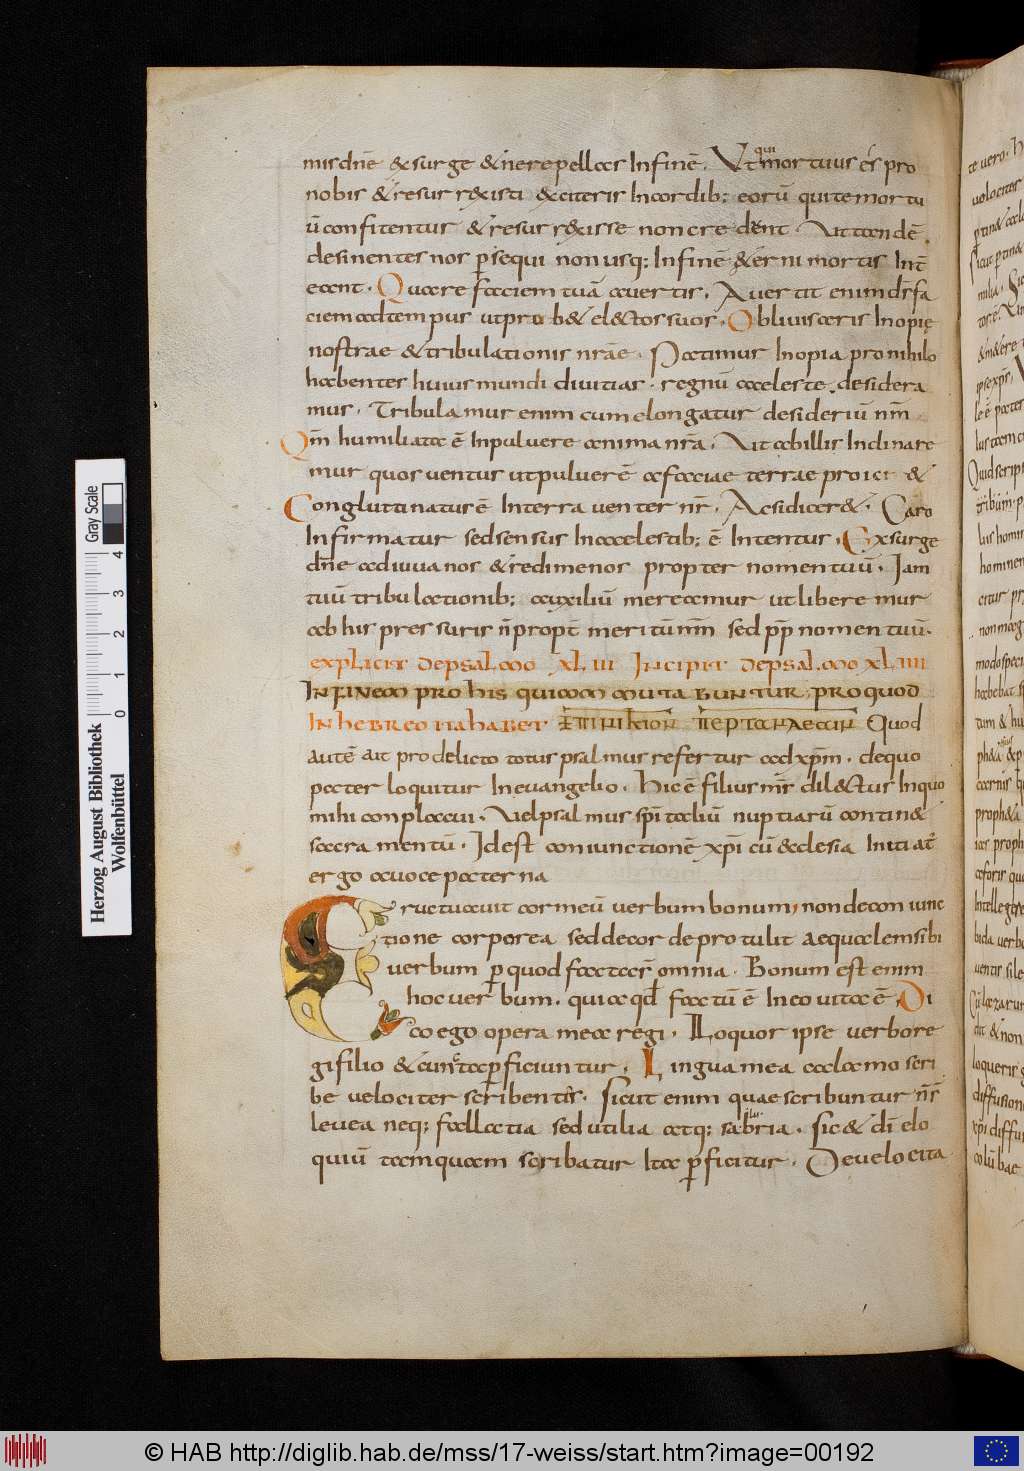 mis dn̄e & surge & ne repellas Infinē. Vt qui mortuus es pro
nobis & resurrexisti exciteris Incordib; eorū qui te mortu
ū confitentur & resurrexisse non credent. Aut tandē
desinentes nos p̱sequi non usq; Infinē &erni mortis Int̄
eant. Quare faciem tuā auertis. Auertit enim dn̄s fa
ciem ad tempus ut prob& el&tos suos. Obliuisceris Inopię
nostrae & tribulationis nr̄ae. Patimur Inopia pro nihilo
habentes huius mundi diuitias. regnū caeleste desidera
mus. Tribulamur enim cum elongatur desideriū nr̄m
Qm̄ humiliata ē Inpuluere anima nr̄a. Aut ab illis Inclinare
mur quos uentus ut puluerē a faciae terrae proicit &
Conglutinatur ē Interra uenter nr̄. Ac si dicer&. Caro
Infirmatur sed sensus Incaelestib; ē Intentus. Exsurge
dn̄e adiuua nos & redime nos propter nomen tuū. Iam
tuū tribulationib; auxiliū mereamur ut liberemur
ab his pressuris n̄ propt̄ meritū nr̄m sed pp̄ nomen tuū.
explicit depsalmo XLIII Incipit depsalmo XLIIII
IN FINEM pro his qui inmutabuntur pro quod
In hebreo ita habet
Quod
autē ait pro delicto totus psalmus refertur ad xp̄m. de quo
pater loquitur In euangelio. Hic ē filius m̄s dil&tus Inquo
mihi conplacui. Vel psalmus sp̄italiū nuptiarū contin&
sacramentū. Id est coniunctionē xp̄i cū ecclesia Initiat̄
ergo a uoce paterna
Eructuauit cor meū uerbum bonum, non de coniunc
tione corporea sed de corde protulit aequalem sibi
uerbum p̱ quod facta s̄ omnia. Bonum est enim
hoc uerbum. quia qd̄ factū ē Ineo uita ē. Di
co ego opera mea regi. Loquor ipse uerbo re
gi filio & cuncta p̱ficiuntur. Lingua mea calamo scri
be uelociter scribentis. Sicut enim quae scribuntur n̄ s̄
leuea neq; fallatia sed utilia atq; salubria. sic & dī elo
quiū tamquam scribatur Ita p̱ficitur. De uelocita
Herzog August Bibliothek
Wolfenbüttel
Gray Scale
0 1 2 3 4
© HAB http://diglib.hab.de/mss/17-weiss/start.htm?image=00192